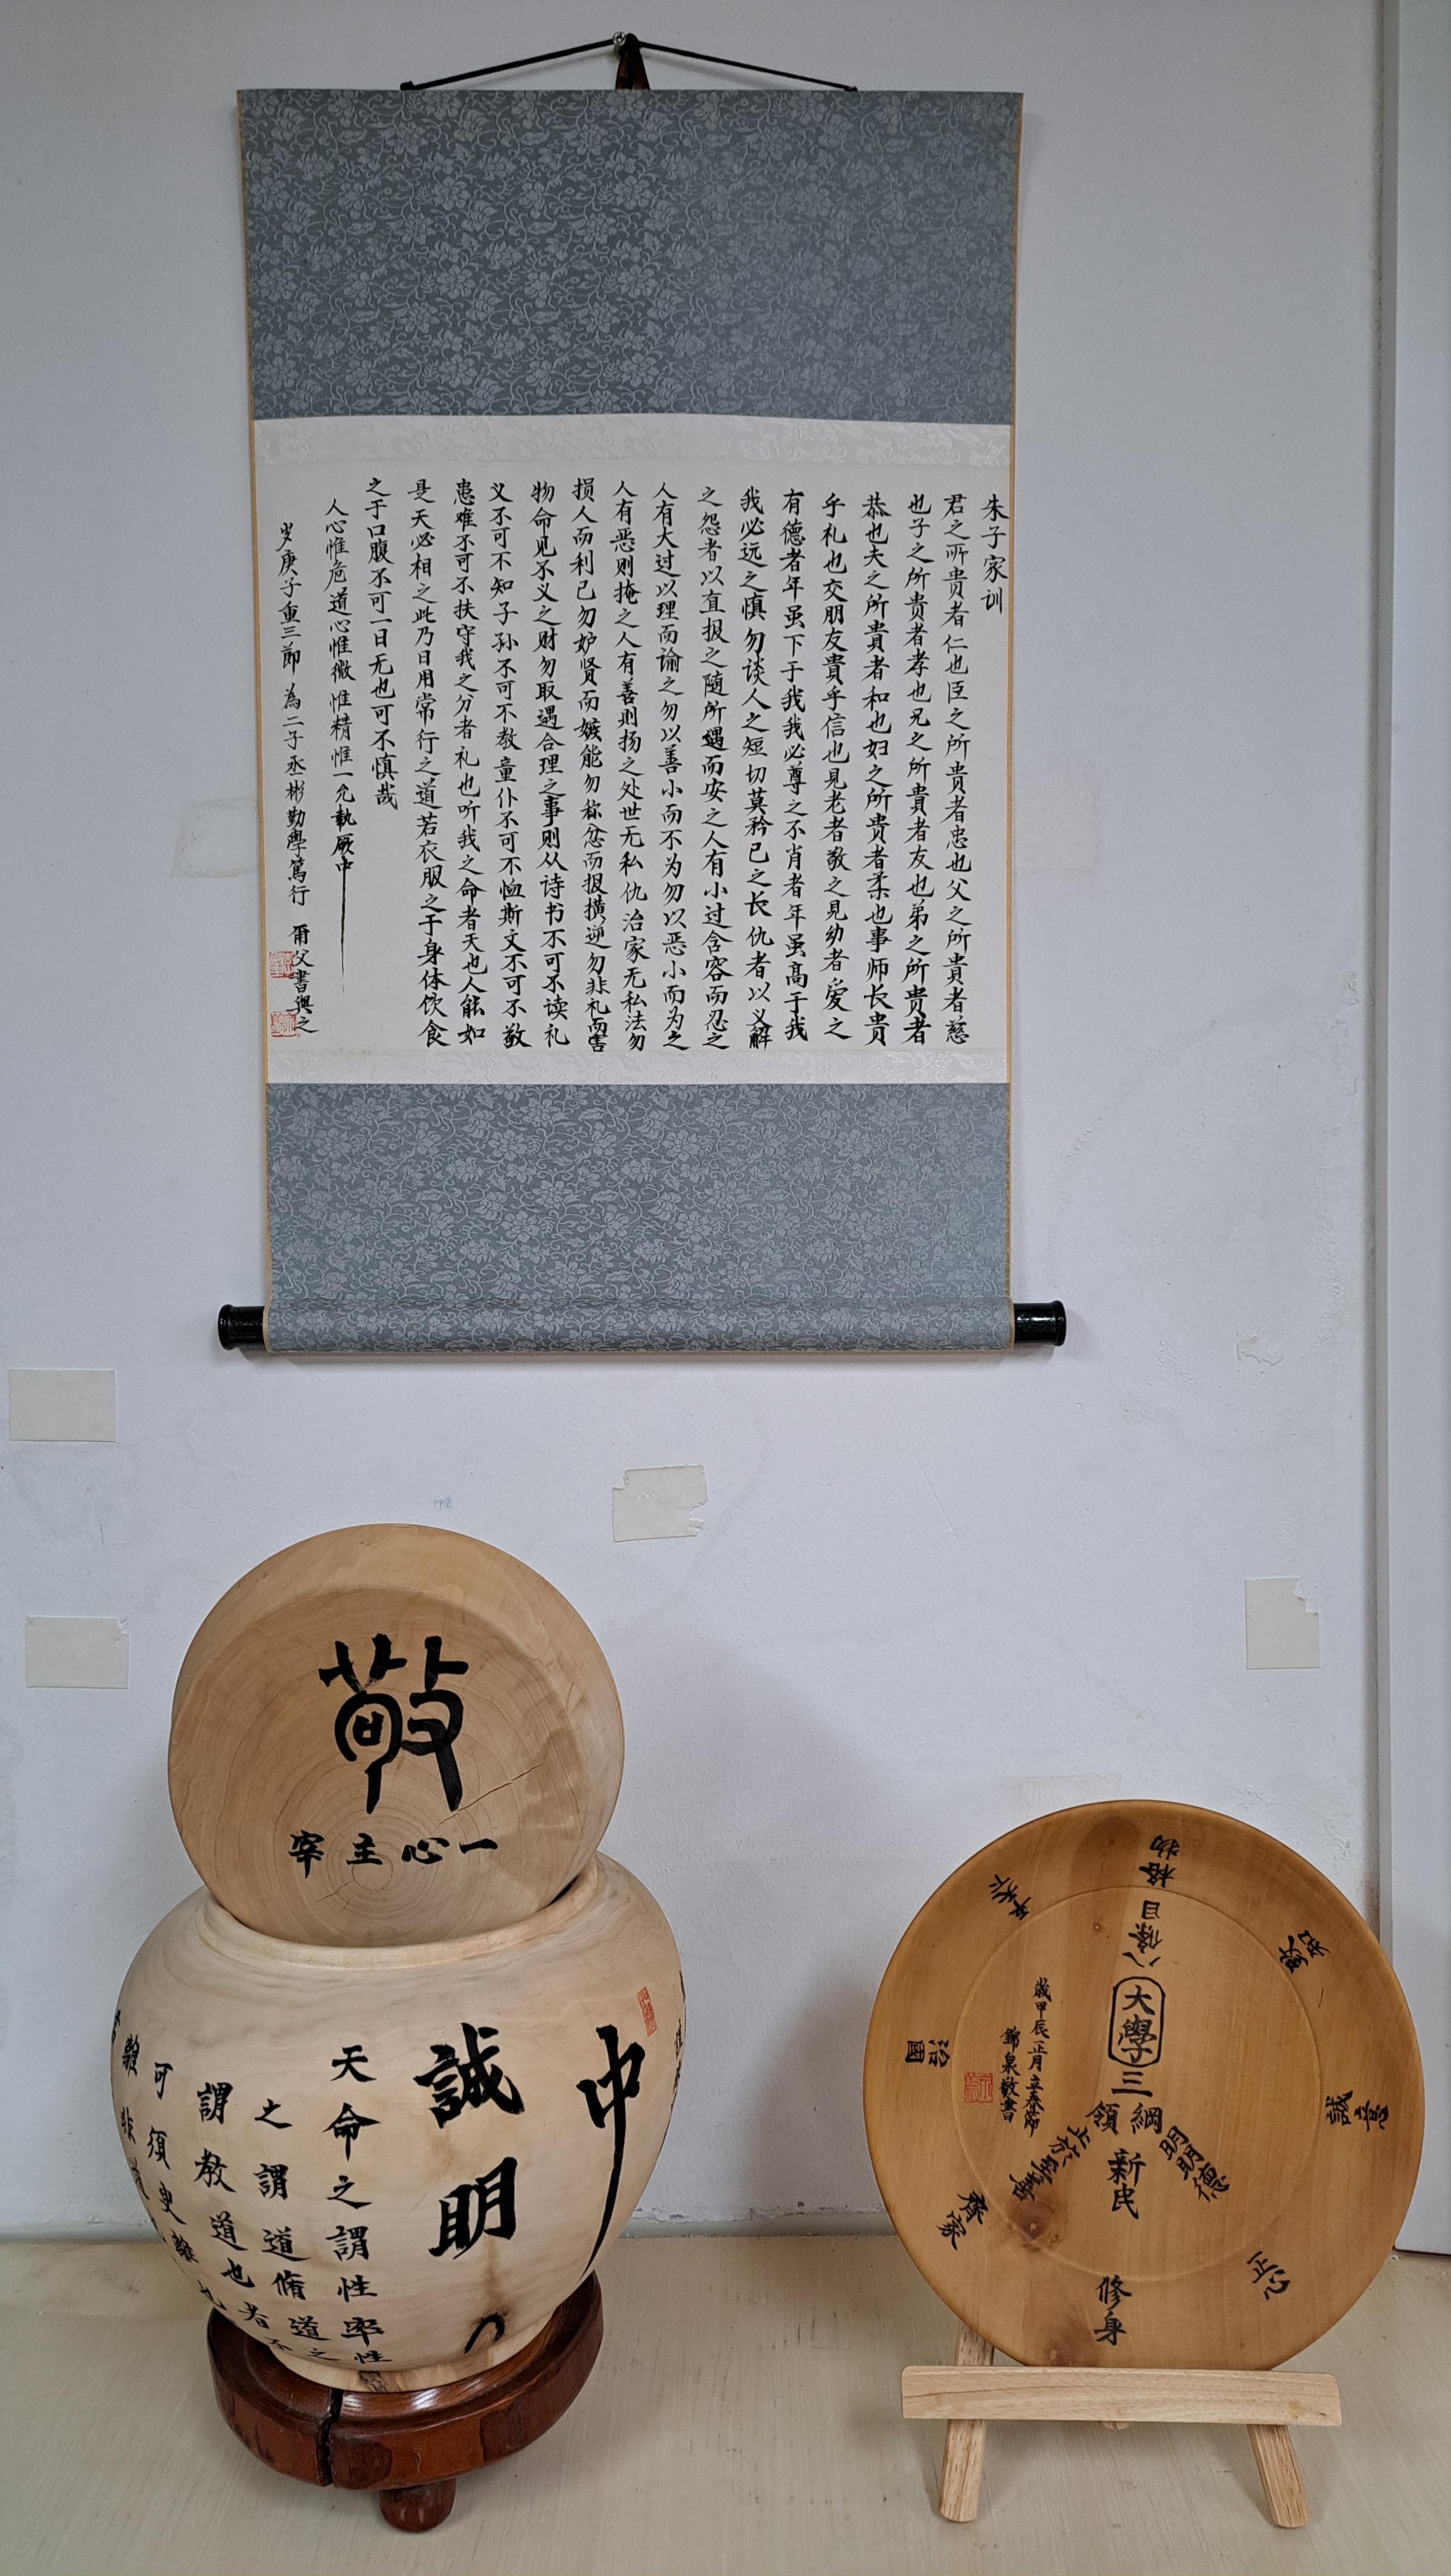 朱子家训
君之所贵者仁也臣之所贵者忠也父之所貴者慈
也子之所贵者孝也兄之所貴者友也弟之所贵者
恭也夫之所貴者和也妇之所贵者柔也事师长贵
乎礼也交朋友貴乎信也見老者敬之見幼者爱之
有德者年虽下于我我必尊之不肖者年虽高于我
我必远之慎勿谈人之短切莫矜己之长仇者以义解
之怨者以直报之随所遇而安之人有小过含容而忍之
人有大过以理而谕之勿以善小而不为勿以恶小而为之
人有恶则掩之人有善则扬之处世无私仇治家无私法勿
损人而利己勿妒贤而嫉能勿称忿而报横逆勿非礼而害
物命见不义之财勿取遇合理之事则从诗书不可不读礼
义不可不知子孙不可不教童仆不可不恤斯文不可不敬
患难不可不扶守我之分者礼也听我之命者天也人能如
是天必相之此乃日用常行之道若衣服之于身体饮食
之于口腹不可一日无也可不慎哉
人心惟危道心惟微惟精惟一允執厥中
岁庚子重三節為二子丞彬勤學篤行 爾父書與之
敬
一心主宰
中
誠明
天命之謂性率性
之謂道脩道之
謂教道也者不
可須臾離也
離非道
大學
三
綱領
明明德
新民
止於至善
八條目
格物
致知
誠意
正心
修身
齊家
治國
平天下
歲甲辰正月立春節
錦泉敬書